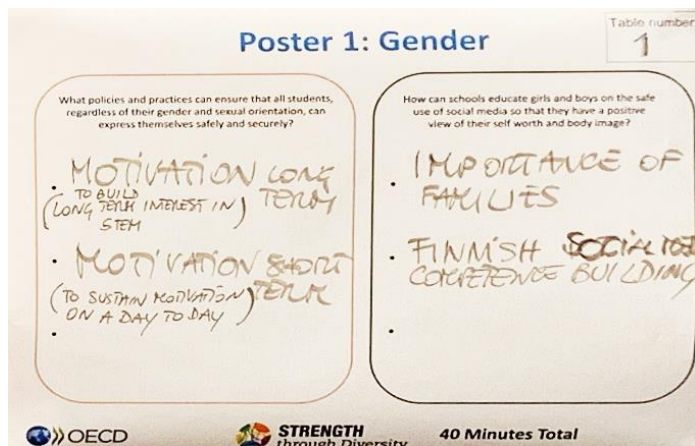 Poster 1: Gender
Table number
1
What policies and practices can ensure that all students,
regardless of their gender and sexual orientation, can
express themselves safely and securely?
• MOTIVATION LONG
TERM
(TO BUILD
LONG TERM INTEREST IN)
STEM
• MOTIVATION SHORT
TERM
(TO SUSTAIN MOTIVATION)
ON A DAY TO DAY
•
How can schools educate girls and boys on the safe
use of social media so that they have a positive
view of their self worth and body image?
• IMPORTANCE OF
FAMILIES
• FINNISH
COMPETENCE BUILDING
•
OECD
STRENGTH
through Diversity
40 Minutes Total